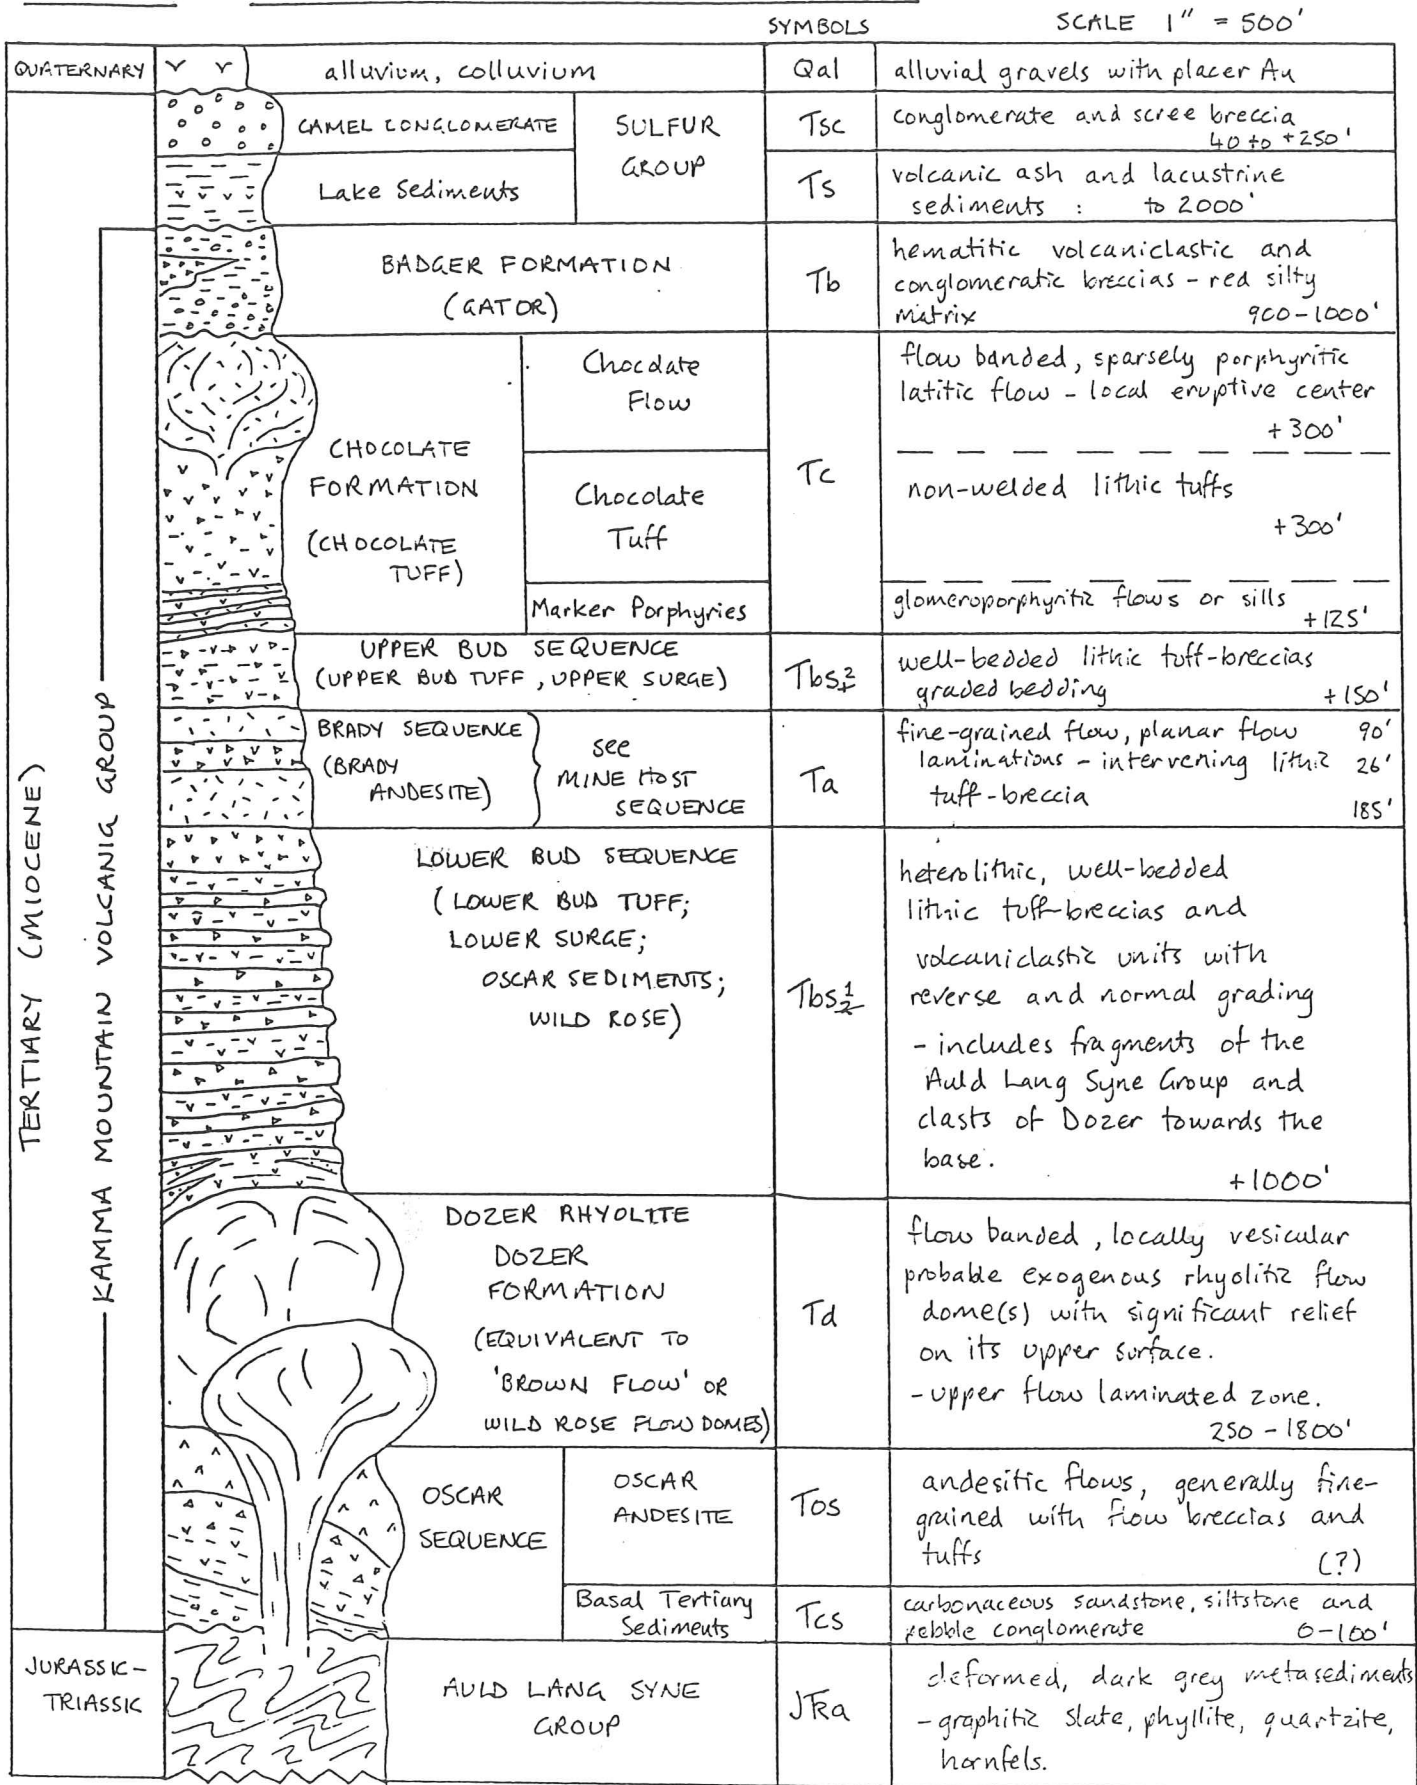 SYMBOLS
SCALE 1" = 500'
QUATERNARY
alluvium, colluvium
Qal
alluvial gravels with placer Au
TERTIARY (MIOCENE)
CAMEL CONGLOMERATE
SULFUR
GROUP
Tsc
conglomerate and scree breccia
40 to +250'
Lake Sediments
Ts
volcanic ash and lacustrine
sediments : to 2000'
KAMMA MOUNTAIN VOLCANIC GROUP
BADGER FORMATION
(GATOR)
Tb
hematitic volcaniclastic and
conglomeratic breccias - red silty
matrix 900-1000'
CHOCOLATE
FORMATION
(CHOCOLATE
TUFF)
Chocolate
Flow
Tc
flow banded, sparsely porphyritic
latitic flow - local eruptive center
+300'
Chocolate
Tuff
non-welded lithic tuffs
+300'
Marker Porphyries
glomeroporphyritic flows or sills
+125'
UPPER BUD SEQUENCE
(UPPER BUD TUFF, UPPER SURGE)
Tbs2
well-bedded lithic tuff-breccias
graded bedding +150'
BRADY SEQUENCE
(BRADY
ANDESITE)
see
MINE HOST
SEQUENCE
Ta
fine-grained flow, planar flow 90'
laminations - intervening lithic 26'
tuff-breccia 185'
LOWER BUD SEQUENCE
(LOWER BUD TUFF;
LOWER SURGE;
OSCAR SEDIMENTS;
WILD ROSE)
Tbs1
heterolithic, well-bedded
lithic tuff-breccias and
volcaniclastic units with
reverse and normal grading
- includes fragments of the
Auld Lang Syne Group and
clasts of Dozer towards the
base.
+1000'
DOZER RHYOLITE
DOZER
FORMATION
(EQUIVALENT TO
'BROWN FLOW' OR
WILD ROSE FLOW DOMES)
Td
flow banded, locally vesicular
probable exogenous rhyolitic flow
dome(s) with significant relief
on its upper surface.
- upper flow laminated zone.
250-1800'
OSCAR
SEQUENCE
OSCAR
ANDESITE
Tos
andesitic flows, generally fine-
grained with flow breccias and
tuffs (?)
Basal Tertiary
Sediments
Tcs
carbonaceous sandstone, siltstone and
pebble conglomerate 0-100'
JURASSIC-
TRIASSIC
AULD LANG SYNE
GROUP
JTRa
deformed, dark grey metasediments
- graphitic slate, phyllite, quartzite,
hornfels.